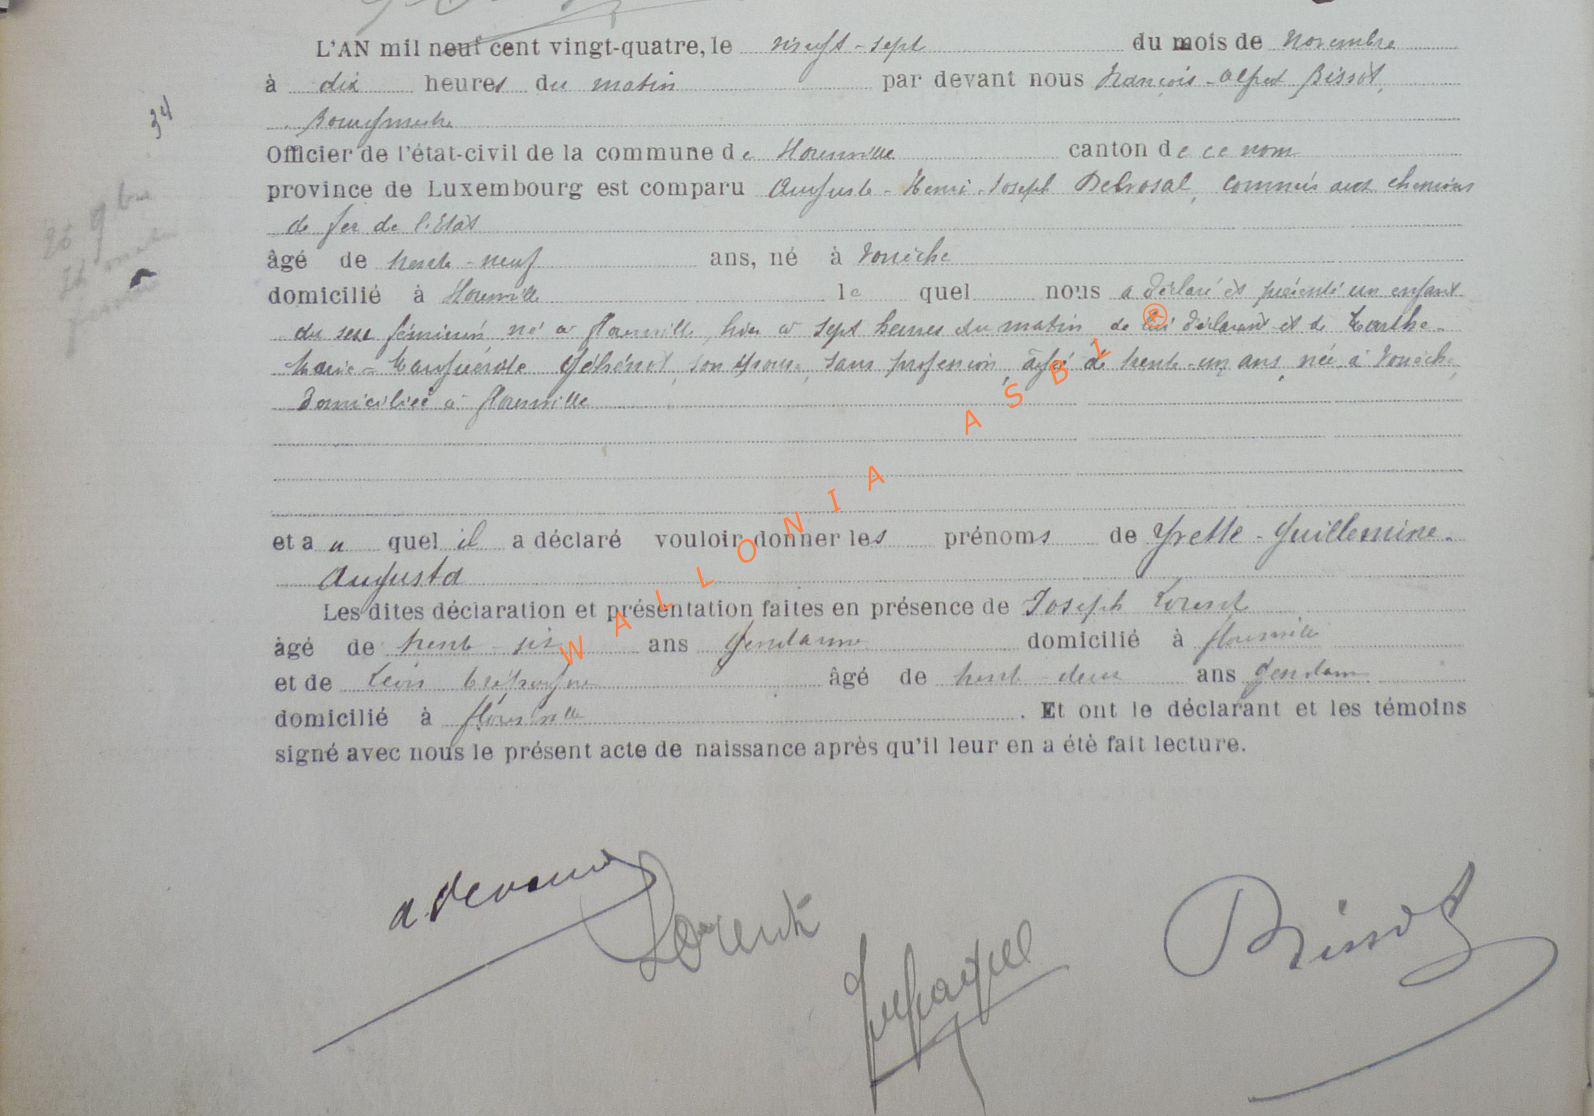 L'AN mil neuf cent vingt-quatre, le vingt-sept du mois de Novembre
à dix heures du matin par devant nous François-Alfred Bissot,
Bourgmestre
34
Officier de l'état-civil de la commune de Florenville canton de ce nom
province de Luxembourg est comparu Auguste-Henri-Joseph commis aux chemins
de fer de l'Etat
âgé de trente-neuf ans, né à Vonêche
domicilié à Florenville le quel nous a déclaré et présenté un enfant
du sexe féminin né à Florenville, hier à sept heures du matin de lui déclarant et de Marthe-
Marie-Marguerite son épouse, sans profession, âgée de trente-un ans, née à Vonêche,
domiciliée à Florenville
et a u quel il a déclaré vouloir donner les prénoms de Yvette-Guillemine-
Augusta
Les dites déclaration et présentation faites en présence de Joseph Lorent
âgé de trente-six ans gendarme domicilié à Florenville
et de Léon âgé de trente-deux ans gendarme
domicilié à Florenville. Et ont le déclarant et les témoins
signé avec nous le présent acte de naissance après qu'il leur en a été fait lecture.
WALLONIA ASBL ®
Lorent
Bissot